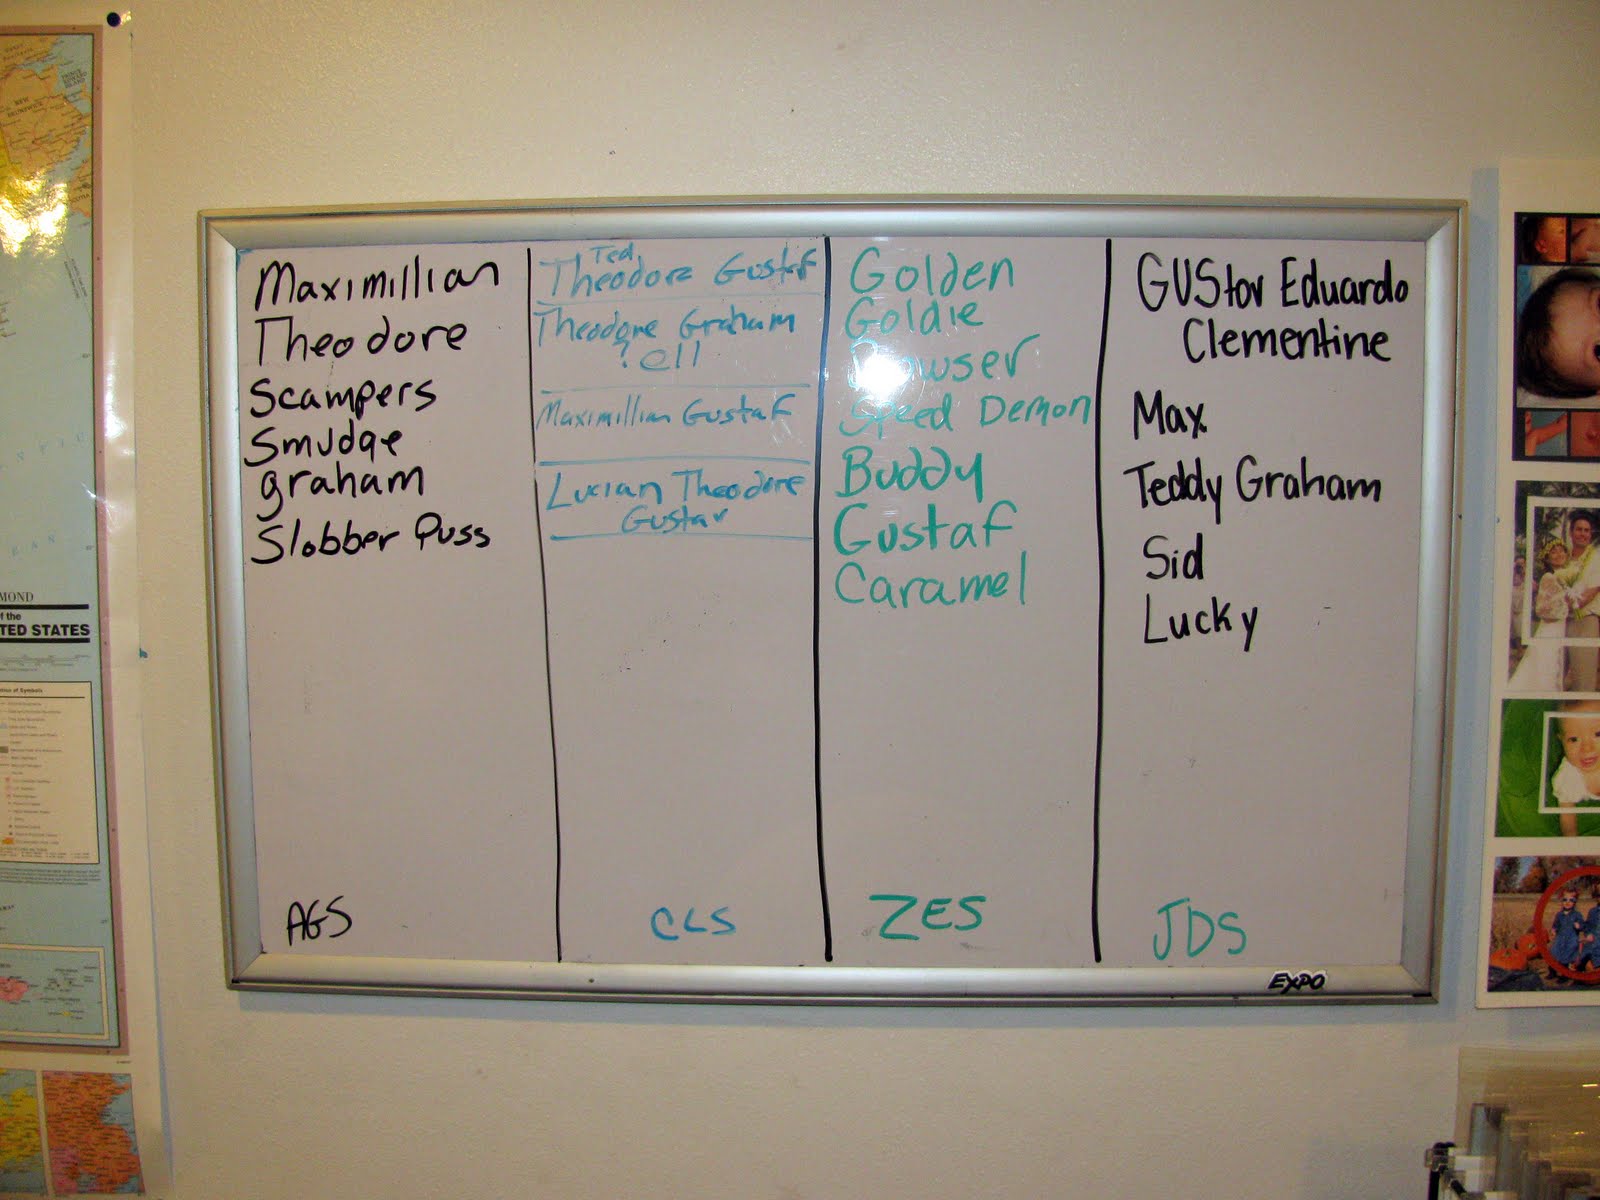 Maximillian
Theodore
Scampers
Smudge
graham
Slobber Puss
AGS
Ted
Theodore Gustaf
Theodore Graham
? ell
Maximillian Gustaf
Lucian Theodore
Gustav
CLS
Golden
Goldie
Speed Demon
Buddy
Gustaf
Caramel
ZES
GUStav Eduardo
Clementine
Max
Teddy Graham
Sid
Lucky
JDS
EXPO
MOND
of the
TED STATES
NEW
BRUNSWICK